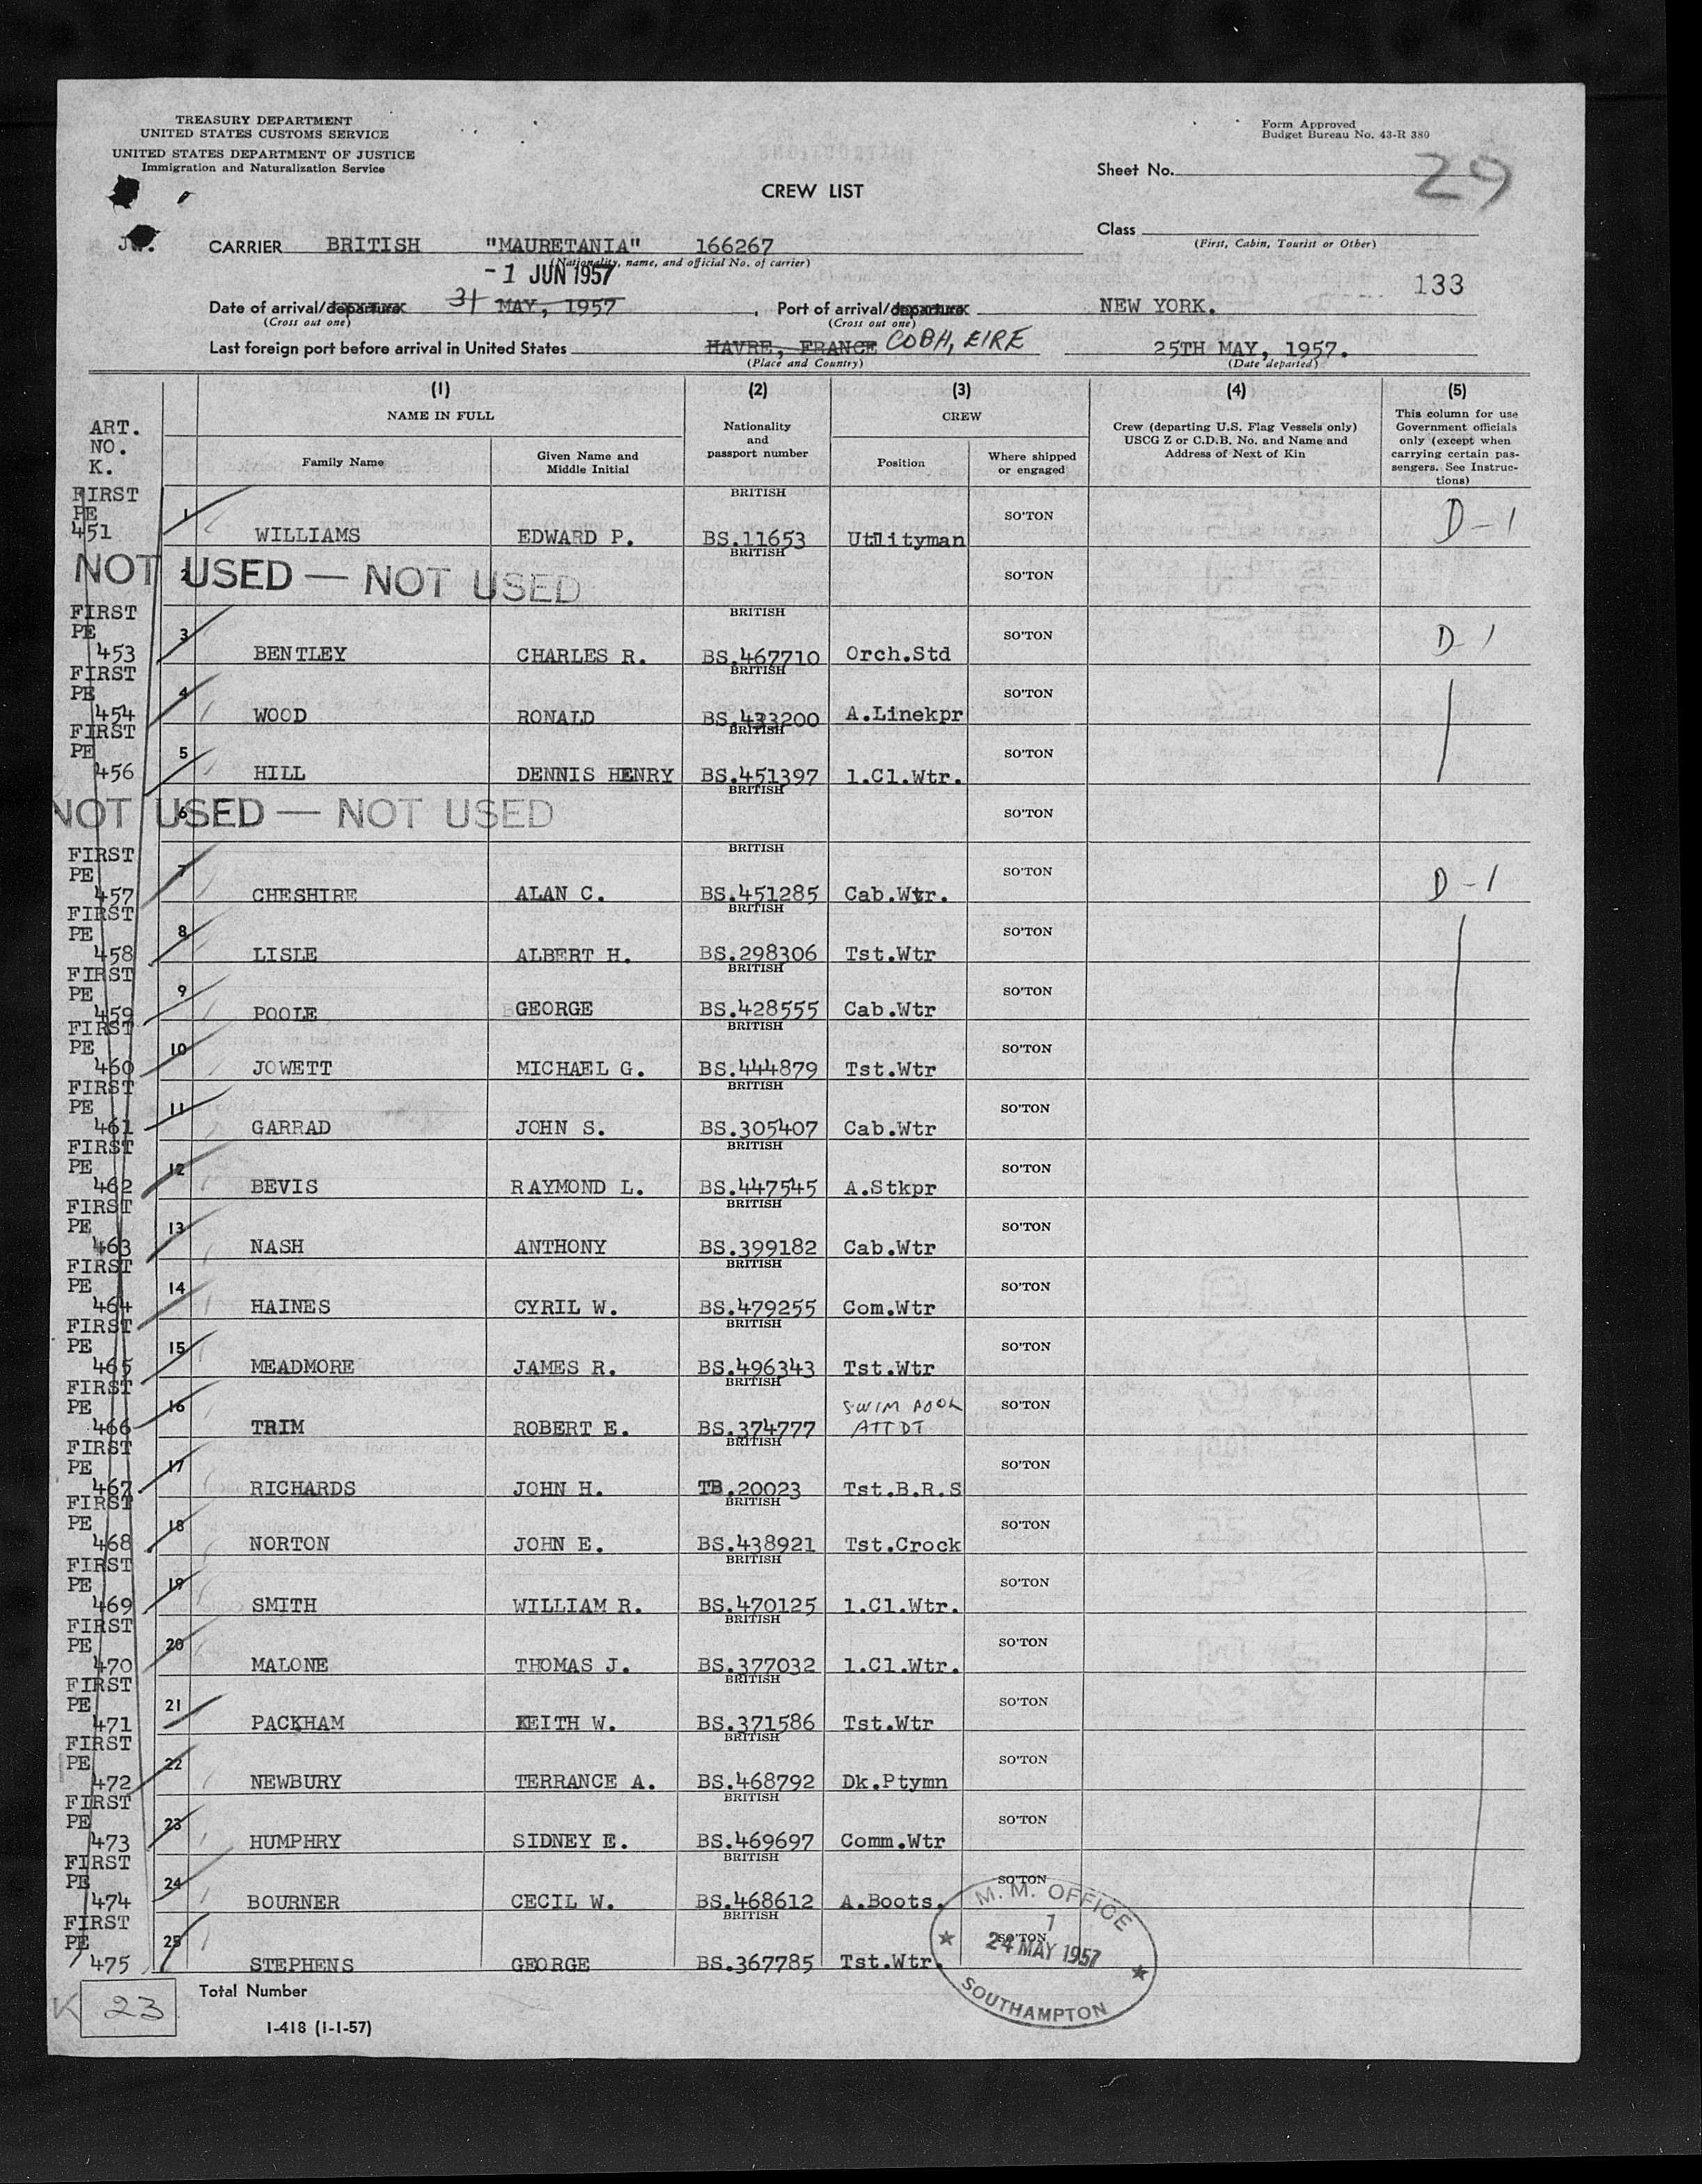 TREASURY DEPARTMENT
UNITED STATES CUSTOMS SERVICE
UNITED STATES DEPARTMENT OF JUSTICE
Immigration and Naturalization Service
Form Approved
Budget Bureau No. 43-R 380
Sheet No. 29
CREW LIST
Class
(First, Cabin, Tourist or Other)
CARRIER BRITISH "MAURETANIA" 166267
(Nationality, name, and official No. of carrier)
-1 JUN 1957
133
Date of arrival/departure 31 MAY, 1957, Port of arrival/departure NEW YORK.
(Cross out one) (Cross out one)
Last foreign port before arrival in United States HAVRE, FRANCE COBH, EIRE 25TH MAY, 1957.
(Place and Country) (Date departed)
(1) (2) (3) (4) (5)
NAME IN FULL
Nationality and passport number
CREW
Crew (departing U.S. Flag Vessels only) USCG Z or C.D.B. No. and Name and Address of Next of Kin
This column for use Government officials only (except when carrying certain passengers. See Instructions)
ART. NO. K.
Family Name Given Name and Middle Initial Position Where shipped or engaged
FIRST PE 451 1 WILLIAMS EDWARD P. BRITISH BS.11653 Utilityman SO'TON D-1
NOT USED — NOT USED 2 BRITISH SO'TON
FIRST PE 453 3 BENTLEY CHARLES R. BRITISH BS.467710 Orch.Std SO'TON D-1
FIRST PE 454 4 WOOD RONALD BRITISH BS.433200 A.Linekpr SO'TON
FIRST PE 456 5 HILL DENNIS HENRY BRITISH BS.451397 1.Cl.Wtr. SO'TON
NOT USED — NOT USED 6 BRITISH SO'TON
FIRST PE 457 7 CHESHIRE ALAN C. BRITISH BS.451285 Cab.Wtr. SO'TON D-1
FIRST PE 458 8 LISLE ALBERT H. BRITISH BS.298306 Tst.Wtr SO'TON
FIRST PE 459 9 POOLE GEORGE BRITISH BS.428555 Cab.Wtr SO'TON
FIRST PE 460 10 JOWETT MICHAEL G. BRITISH BS.444879 Tst.Wtr SO'TON
FIRST PE 461 11 GARRAD JOHN S. BRITISH BS.305407 Cab.Wtr SO'TON
FIRST PE 462 12 BEVIS RAYMOND L. BRITISH BS.447545 A.Stkpr SO'TON
FIRST PE 463 13 NASH ANTHONY BRITISH BS.399182 Cab.Wtr SO'TON
FIRST PE 464 14 HAINES CYRIL W. BRITISH BS.479255 Com.Wtr SO'TON
FIRST PE 465 15 MEADMORE JAMES R. BRITISH BS.496343 Tst.Wtr SO'TON
FIRST PE 466 16 TRIM ROBERT E. BRITISH BS.374777 SWIM POOL ATTDT SO'TON
FIRST PE 467 17 RICHARDS JOHN H. BRITISH TB.20023 Tst.B.R.S SO'TON
FIRST PE 468 18 NORTON JOHN E. BRITISH BS.438921 Tst.Crock SO'TON
FIRST PE 469 19 SMITH WILLIAM R. BRITISH BS.470125 1.Cl.Wtr. SO'TON
FIRST PE 470 20 MALONE THOMAS J. BRITISH BS.377032 1.Cl.Wtr. SO'TON
FIRST PE 471 21 PACKHAM KEITH W. BRITISH BS.371586 Tst.Wtr SO'TON
FIRST PE 472 22 NEWBURY TERRANCE A. BRITISH BS.468792 Dk.Ptymn SO'TON
FIRST PE 473 23 HUMPHRY SIDNEY E. BRITISH BS.469697 Comm.Wtr SO'TON
FIRST PE 474 24 BOURNER CECIL W. BRITISH BS.468612 A.Boots. SO'TON
FIRST PE 475 25 STEPHENS GEORGE BRITISH BS.367785 Tst.Wtr. SO'TON
M. M. OFFICE
1
24 MAY 1957
SOUTHAMPTON
23 Total Number
I-418 (1-1-57)